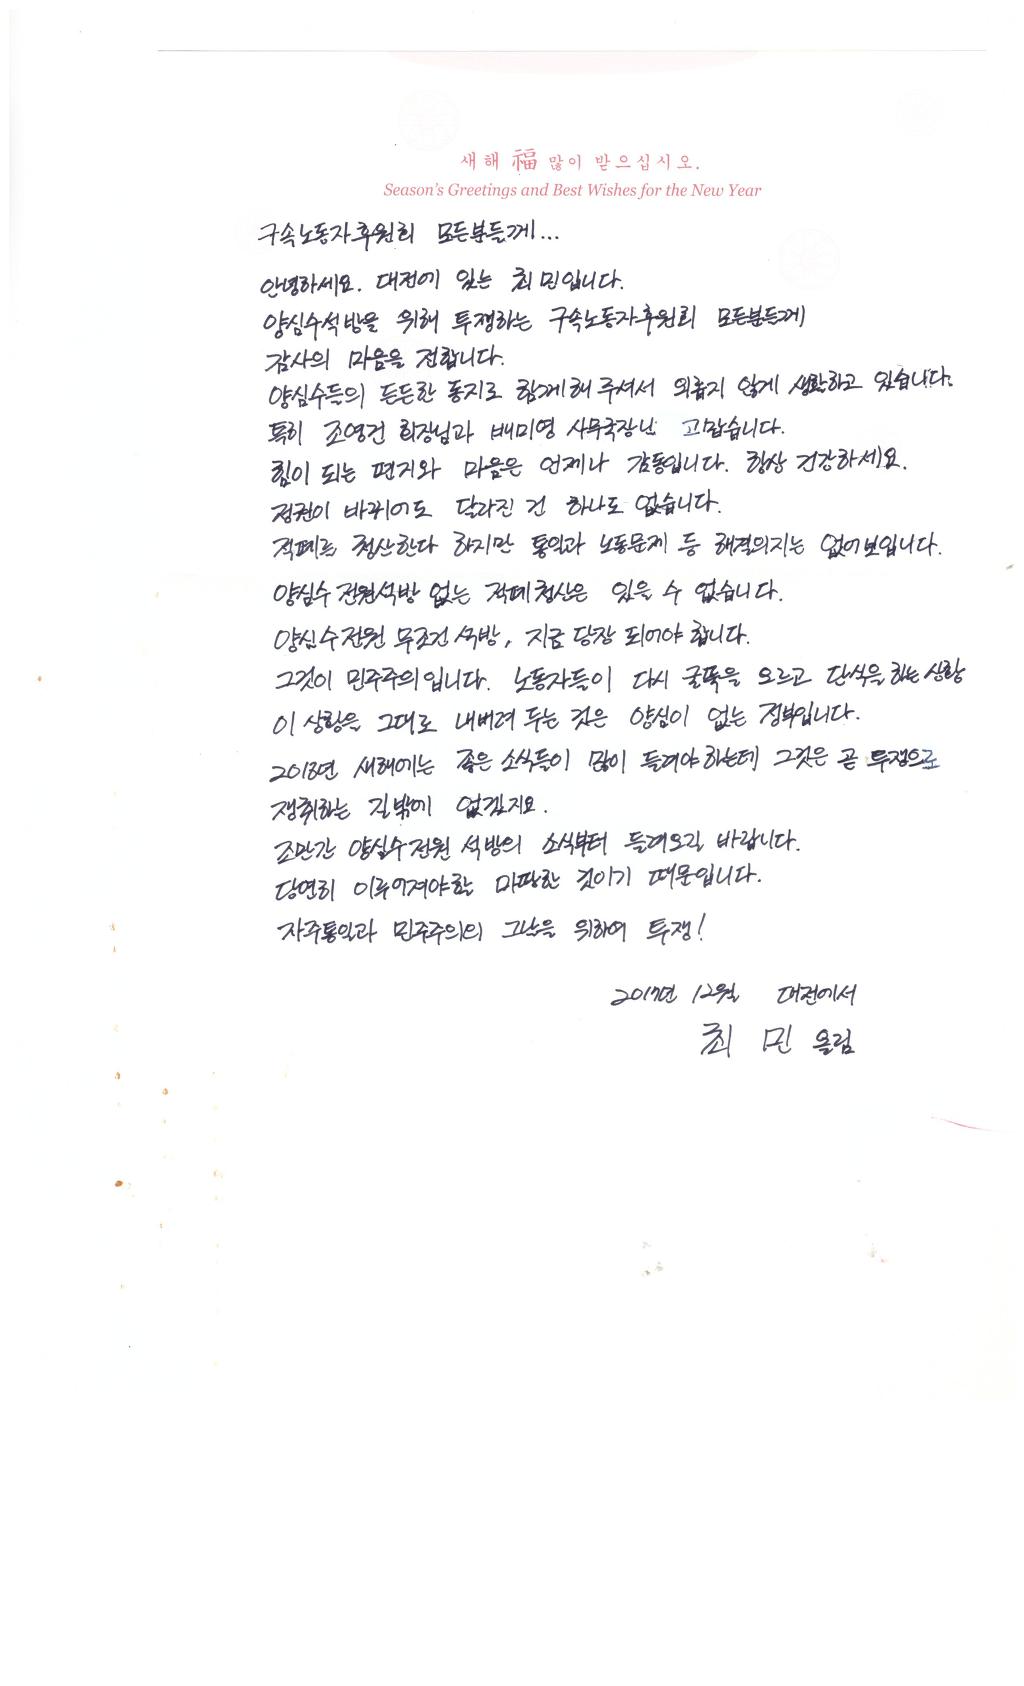 새해 福 많이 받으십시오.
Season's Greetings and Best Wishes for the New Year
구속노동자후원회 모든분들께...
안녕하세요. 대전에 있는 최민입니다.
양심수석방을 위해 투쟁하는 구속노동자후원회 모든분들께
감사의 마음을 전합니다.
양심수들의 든든한 동지로 함께해 주셔서 외롭지 않게 생활하고 있습니다.
특히 조영건 회장님과 배미영 사무국장님 고맙습니다.
힘이 되는 편지와 마음은 언제나 감동입니다. 항상 건강하세요.
정권이 바뀌어도 달라진 건 하나도 없습니다.
적폐를 청산한다 하지만 통일과 노동문제 등 해결의지는 없어보입니다.
양심수 전원석방 없는 적폐청산은 있을 수 없습니다.
양심수전원 무조건 석방, 지금 당장 되어야 합니다.
그것이 민주주의입니다. 노동자들이 다시 굴뚝을 오르고 단식을 하는 상황
이 상황을 그대로 내버려 두는 것은 양심이 없는 정부입니다.
2018년 새해에는 좋은 소식들이 많이 들려야 하는데 그것은 곧 투쟁으로
쟁취하는 길밖에 없겠지요.
조만간 양심수전원 석방의 소식부터 들려오길 바랍니다.
당연히 이루어져야할 마땅한 것이기 때문입니다.
자주통일과 민주주의의 그날을 위하여 투쟁!
2017년 12월 대전에서
최 민 올림